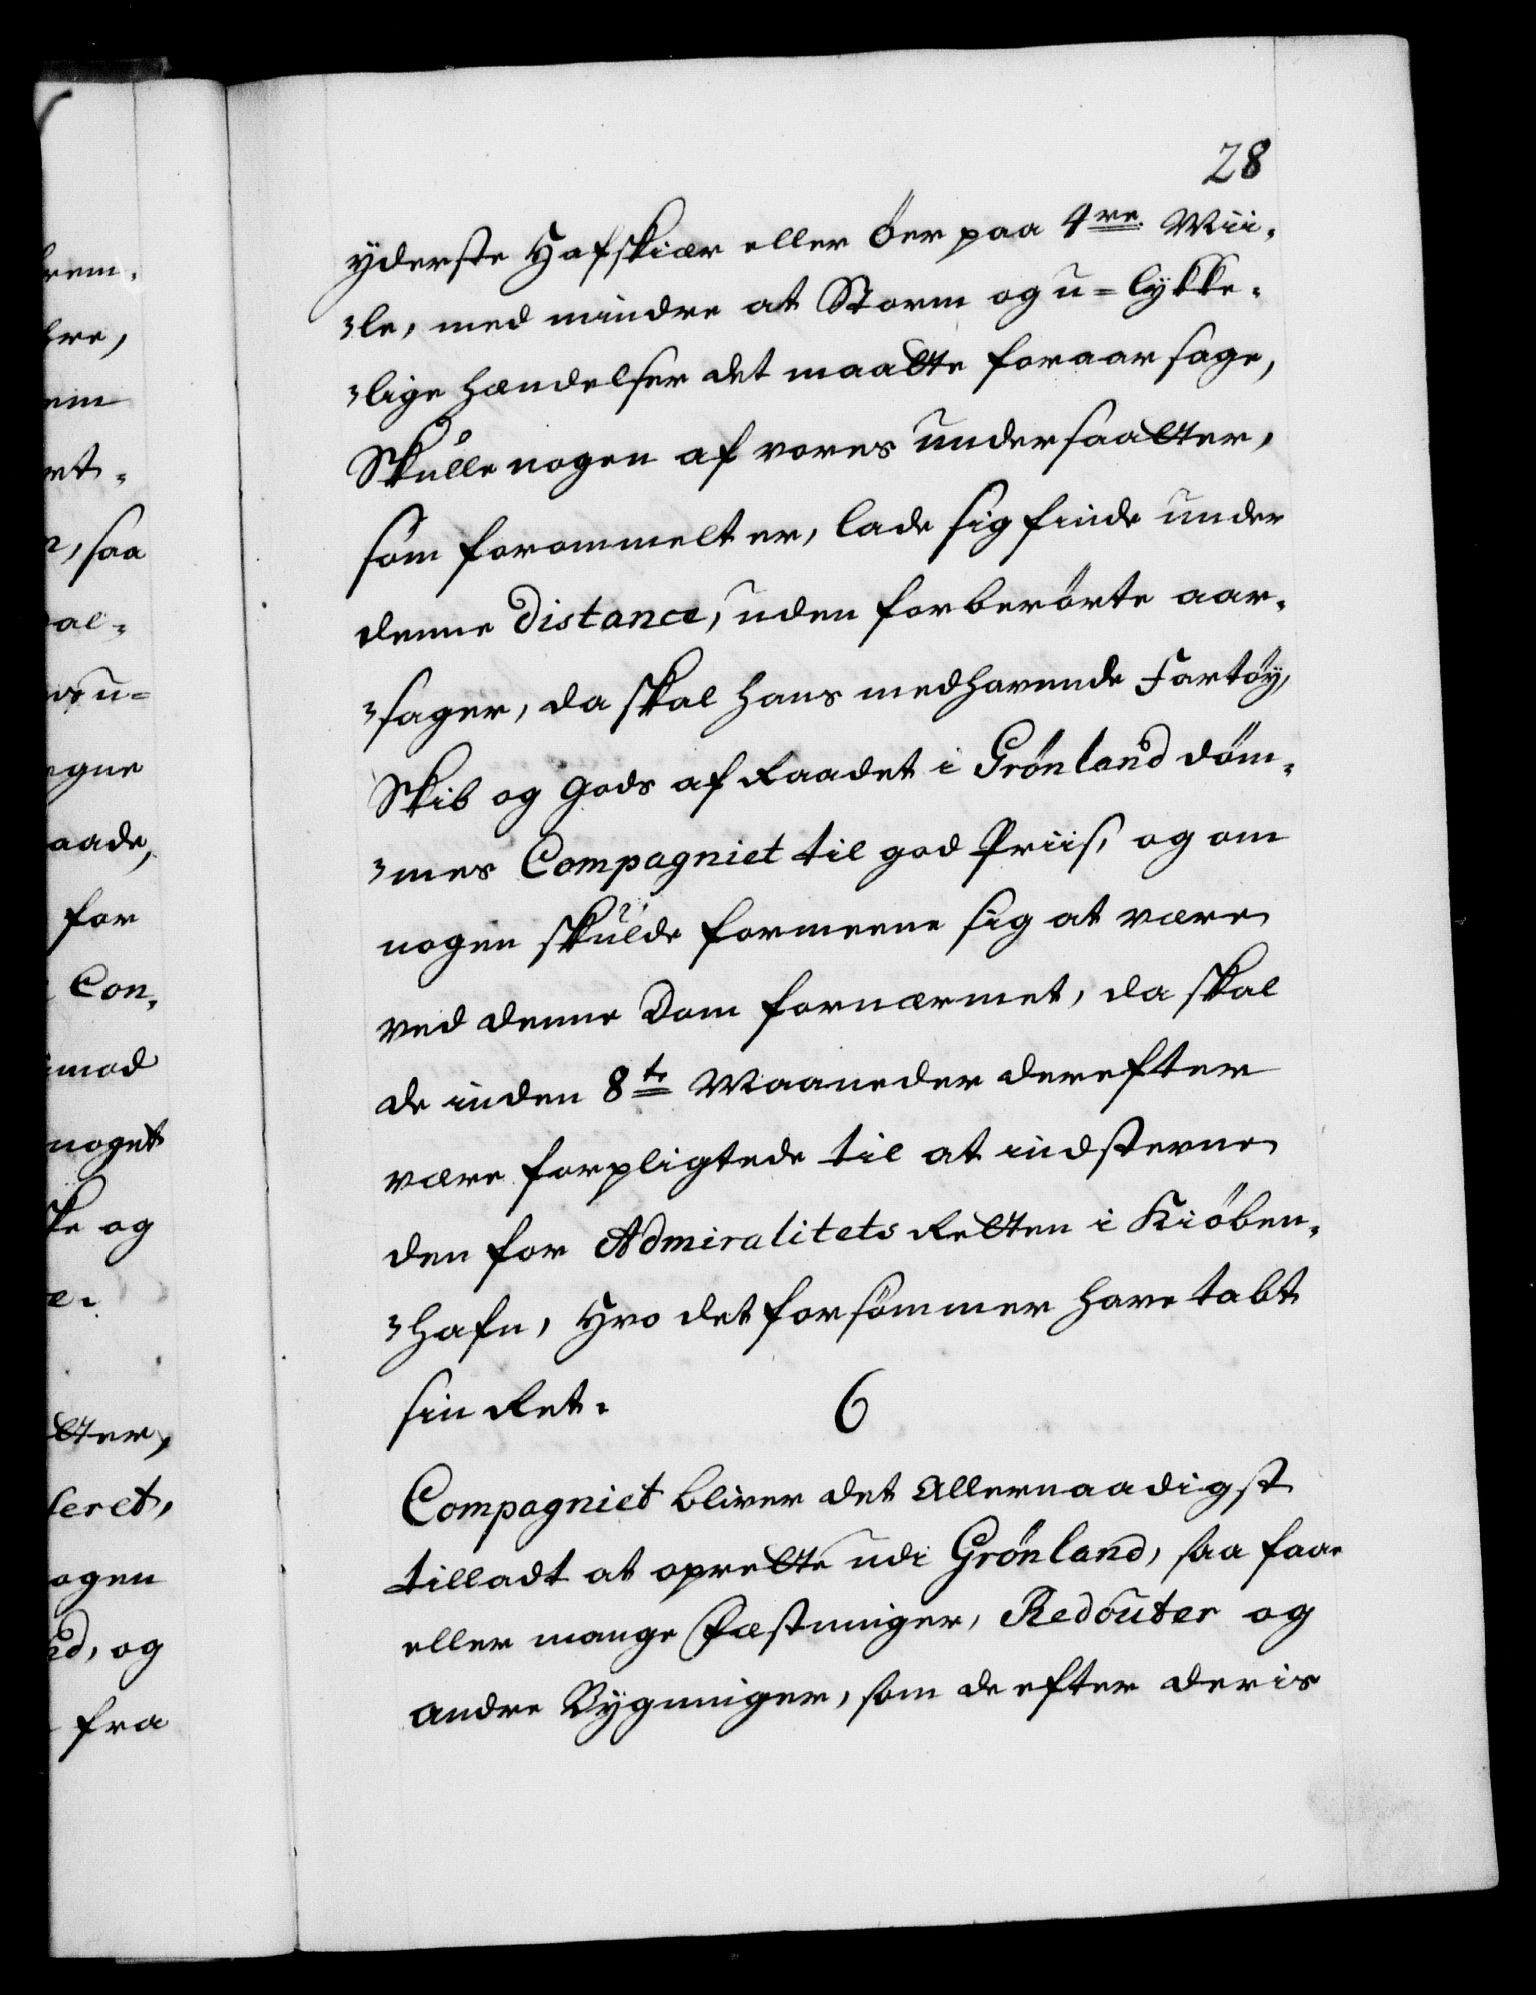 28
yderste Hafskiær eller Öer paa 4re Mii-
-le, med mindre at Storm og u-lykke-
-lige hændelser det maatte foraarsage,
Skulle nogen af vores undersaatter,
som forommelt er, lade sig finde under
denne distance, uden forberörte aar-
-sager, da skal hans medhavende Fartöy,
Skib og Gods af Raadet i Grönland döm-
-mes Compagniet til god Priis, og om
nogen skulde formeene sig at være
ved denne Dom fornærmet, da skal
de inden 8te Maaneder derefter
være forpligtede til at indsterne
den for Admiralitets Retten i Kiöben-
-hafn, Hvo det forsömmer have tabt
sin Ret.
6
Compagniet bliver det Allernaadigst
tilladt at oprette udi Grönland, saa faae
eller mange Fæstninger, Redouter og
andre Bygninger, som de efter deris
rem-
hre,
em
et-
, saa
al-
u-
egne
aade,
for
Con-
imod
noget
ke og
e.
tter,
leret,
ogen
d, og
fra